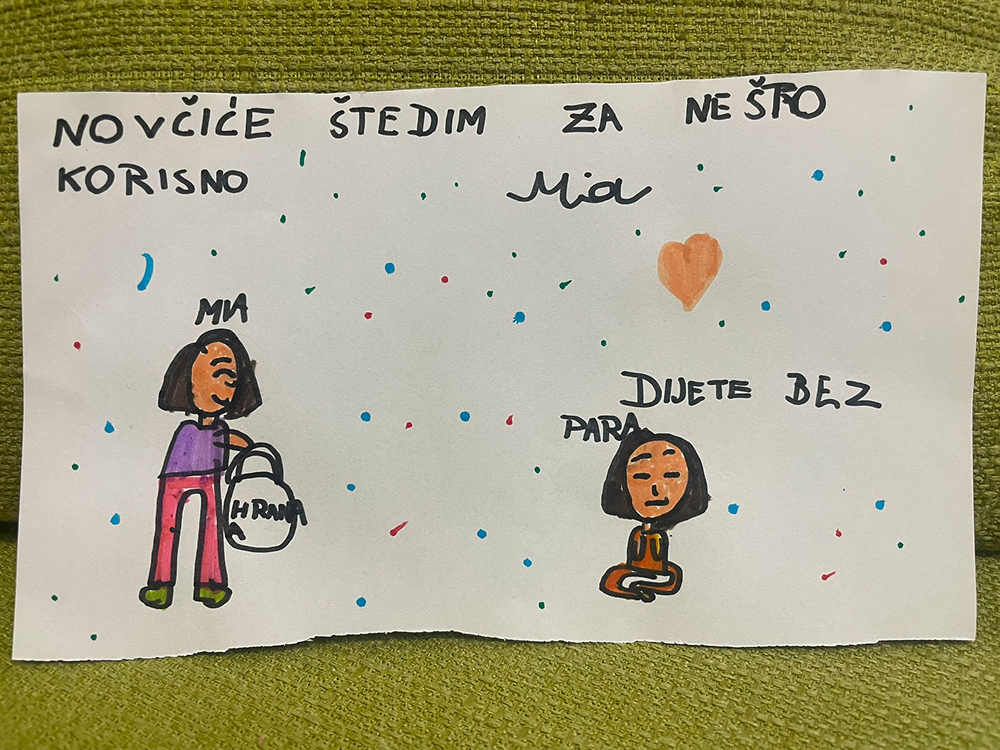 NOVČIĆE ŠTEDIM ZA NEŠTO
KORISNO Mia
MIA
DIJETE BEZ
PARA
HRANA